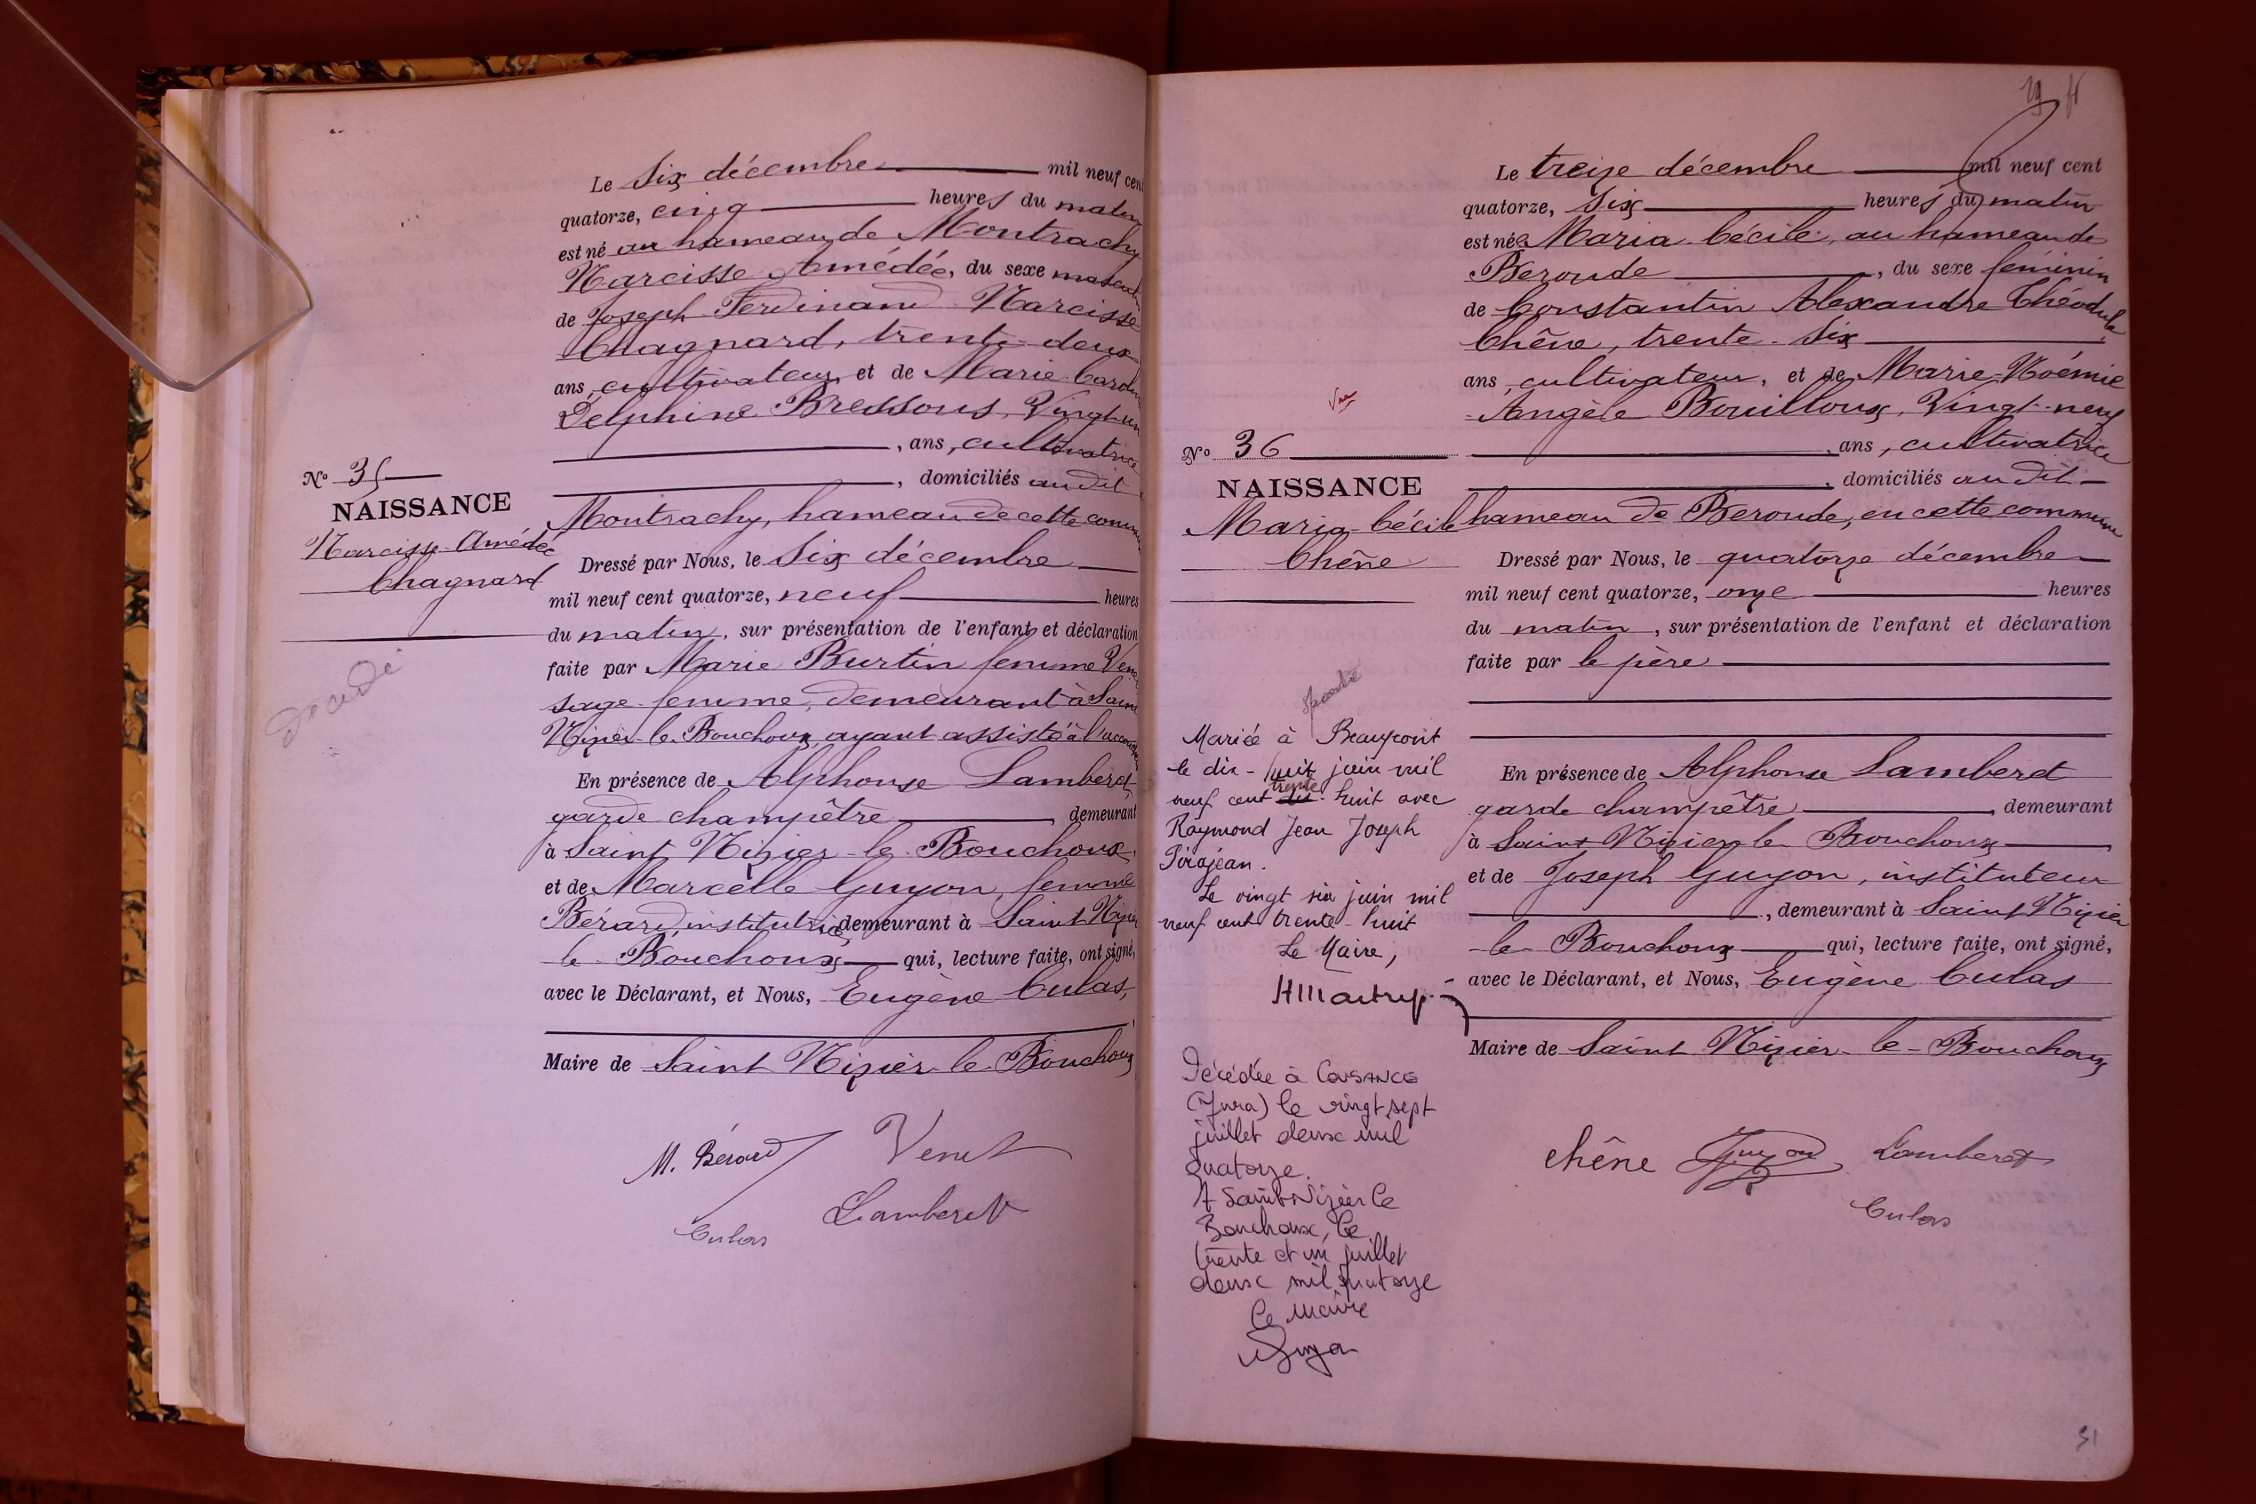 Le Six décembre mil neuf cent
quatorze, cinq heures du matin
est né au hameau de Montrachy
Narcisse Amédée, du sexe masculin
de Joseph Ferdinand Narcisse
Chagnard, trente-deux
ans, cultivateur, et de Marie
Delphine Bressous, Vingt-un
, ans, cultivatrice
, domiciliés au dit
Montrachy, hameau de cette commune
Dressé par Nous, le Six décembre
mil neuf cent quatorze, neuf heures
du matin, sur présentation de l'enfant et déclaration
faite par Marie Burtin femme
sage-femme, demeurant à Saint
Nizier-le-Bouchoux, ayant assisté à l'
En présence de Alphonse Lamberet,
garde champêtre, demeurant
à Saint Nizier-le-Bouchoux,
et de Marcelle Guyon, femme
Bérard, institutrice, demeurant à Saint Nizier
le Bouchoux qui, lecture faite, ont signé,
avec le Déclarant, et Nous, Eugène Culas,
Maire de Saint Nizier-le-Bouchoux
No 35
NAISSANCE
Narcisse-Amédée
Chagnard
décédé
M. Bérard Venet
Culas Lamberet
19
Le treize décembre mil neuf cent
quatorze, Six heures du matin
est née Maria-Cécile, au hameau de
Beroude, du sexe féminin
de Constantin Alexandre Théodule
Chêne, trente-Six
ans, cultivateur, et de Marie-Noémie
Angèle Bouilloux, Vingt-neuf
, ans, cultivatrice
, domiciliés au dit
hameau de Beroude, en cette commune
Dressé par Nous, le quatorze décembre
mil neuf cent quatorze, onze heures
du matin, sur présentation de l'enfant et déclaration
faite par le père
En présence de Alphonse Lamberet
garde champêtre, demeurant
à Saint Nizier le Bouchoux,
et de Joseph Guyon, instituteur
, demeurant à Saint Nizier
le Bouchoux qui, lecture faite, ont signé,
avec le Déclarant, et Nous, Eugène Culas
Maire de Saint Nizier-le-Bouchoux
Vu
No 36
NAISSANCE
Maria-Cécile
Chêne
Mariée à Beaupont
le dix-huit juin mil
neuf cent dix trente huit avec
Raymond Jean Joseph
Pirajean.
Le vingt six juin mil
neuf cent trente-huit
Le Maire,
Décédée à COUSANCE
(Jura) le vingt sept
juillet deux mil
quatorze.
A Saint Nizier le
Bouchoux, le
trente et un juillet
deux mil quatorze
Le Maire
chêne Guyon Lamberet
Culas
51